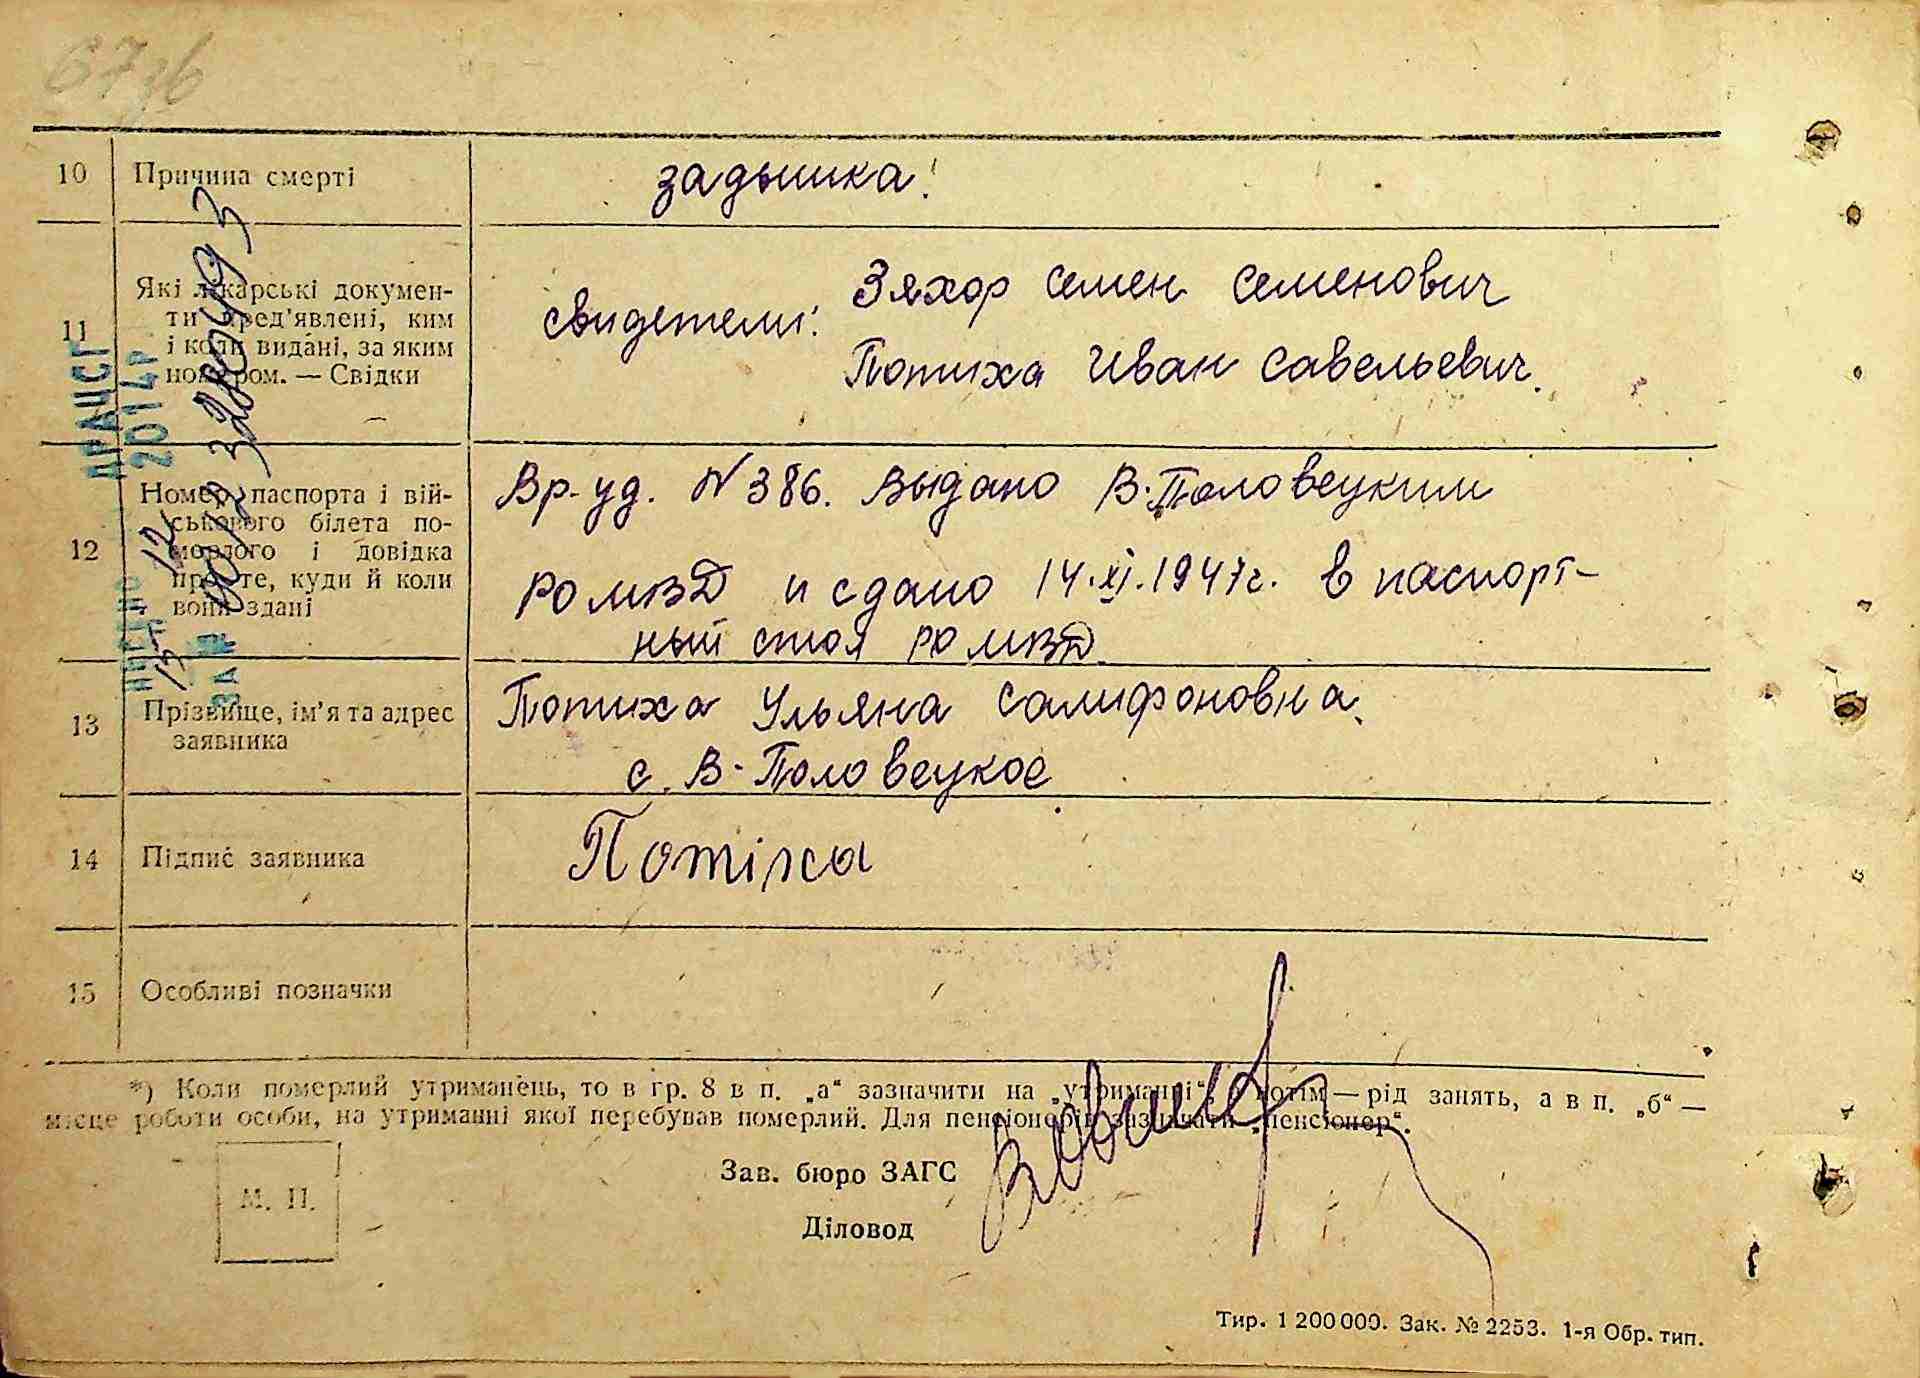 10 Причина смерті задышка!
11 Які лікарські докумен-
ти пред'явлені, ким
і коли видані, за яким
номером. — Свідки
свидетели: Зяхор Семен Семенович
Потиха Иван Савельевич.
12 Номер паспорта і вій-
ськового білета по-
мерлого і довідка
про те, куди й коли
вони здані
Вр. уд. N 386. Выдано В. Половецким
РОМВД и сдано 14.XI.1947г. в паспорт-
ный стол РОМВД.
13 Прізвище, ім'я та адрес
заявника
Потиха Ульяна Самифоновна.
с. В-Половецкое
14 Підпис заявника Потіха
15 Особливі позначки
*) Коли померлий утриманець, то в гр. 8 в п. „а“ зазначити на „утриманні“, а потім — рід занять, а в п. „б“ —
місце роботи особи, на утриманні якої перебував померлий. Для пенсіонерів зазначати „пенсіонер“.
М. П.
Зав. бюро ЗАГС
Діловод
Тир. 1 200 000. Зак. № 2253. 1-я Обр. тип.
ДРАЦСГ
2014р